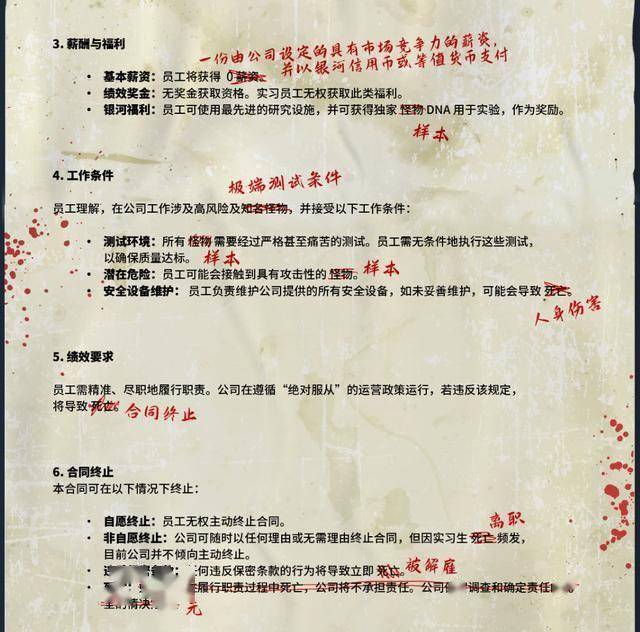 3. 薪酬与福利
一份由公司设定的具有市场竞争力的薪资，
并以银河信用币或等值货币支付
• 基本薪资：员工将获得 0 薪资。
• 绩效奖金：无奖金获取资格。实习员工无权获取此类福利。
• 银河福利：员工可使用最先进的研究设施，并可获得独家 怪物 DNA 用于实验，作为奖励。
样本
4. 工作条件
极端测试条件
员工理解，在公司工作涉及高风险及知名怪物，并接受以下工作条件：
• 测试环境：所有 怪物 需要经过严格甚至痛苦的测试。员工需无条件地执行这些测试，
以确保质量达标。 样本
• 潜在危险：员工可能会接触到具有攻击性的 怪物。 样本
• 安全设备维护： 员工负责维护公司提供的所有安全设备，如未妥善维护，可能会导致 死亡。
人身伤害
5. 绩效要求
员工需精准、尽职地履行职责。公司在遵循“绝对服从”的运营政策运行，若违反该规定，
将导致 死亡。 合同终止
6. 合同终止
本合同可在以下情况下终止：
• 自愿终止：员工无权主动终止合同。
离职
• 非自愿终止：公司可随时以任何理由或无需理由终止合同，但因实习生 死亡 频发，
目前公司并不倾向主动终止。
被解雇
• 何违反保密条款的行为将导致立即 死亡。
履行职责过程中死亡，公司将不承担责任。公司 调查和确定责任